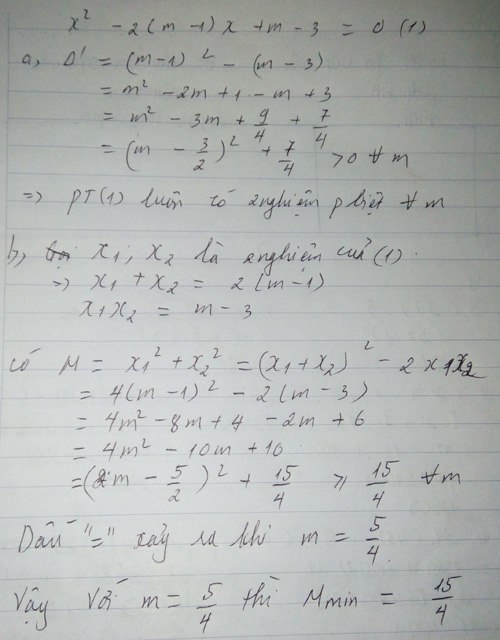 x² - 2(m-1)x + m - 3 = 0 (1)
a, Δ' = (m-1)² - (m-3)
= m² - 2m + 1 - m + 3
= m² - 3m + 9/4 + 7/4
= (m - 3/2)² + 7/4 > 0 ∀ m
=> PT(1) luôn có 2 nghiệm p biệt ∀ m
b, x₁, x₂ là 2 nghiệm của (1).
=> x₁ + x₂ = 2(m-1)
x₁x₂ = m - 3
Có M = x₁² + x₂² = (x₁ + x₂)² - 2x₁x₂
= 4(m-1)² - 2(m-3)
= 4m² - 8m + 4 - 2m + 6
= 4m² - 10m + 10
= (2m - 5/2)² + 15/4 ≥ 15/4 ∀ m
Dấu "=" xảy ra khi m = 5/4.
Vậy với m = 5/4 thì Mmin = 15/4